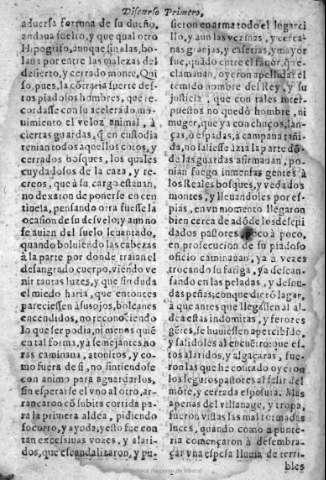 Discurso Primero,
aduersa fortuna de su dueño,
andaua suelto, y que qual otro
Hipogrifo, aunque sin alas, bo-
laua por entre las malezas del
desierto, y cerrado monte. Qui
so, pues, la contraria suerte des-
tos piadosos hombres, que re-
cordasse con su acelerado mo-
uimiento el veloz animal, à
ciertas guardas, que en custodia
tenian todos aquellos cotos, y
cerrados bosques, los quales
cuydadosos de la caza, y re-
creos, que à su cargo estauan,
no dexaron de ponerse en cen
tinela, pensando otra fuesse la
ocasion de su desvelo; y aun no
se auian del suelo leuantado,
quando boluiendo las cabeças
à la parte por donde traian el
desangrado cuerpo, viendo ve
nir tantas luzes, y que sin duda
el miedo haria, que entonces
pareciessen à sus ojos, bolcanes
encendidos, no reconociendo
lo que ser podia, ni menos quié
en tal forma, y à semejantes ho
ras caminaua, atonitos, y co-
mo fuera de si, no sintiendose
con animo para aguardarlos,
sin esperarse el vno al otro, ar-
rancaron cõ subita corrida pa-
ra la primera aldea, pidiendo
socorro, y ayuda, y esto fue con
tan excessiuas vozes, y alari-
dos, que escandalizaron, y pu-
sieron en arma todo el lugarci
llo, y aun las vezinas, y cerca-
nas granjas, y caserias, y mayor
fue, quãdo entre el furor, que
clamauan, oyeron apellidar el
temido nombre del Rey, y su
justicia, que con tales inter-
puestos no quedò hombre, ni
muger, que ya con chuços, lan-
ças, ò espadas, à campana tañi
da, no saliesse àzia la parte dõ-
de las guardas afirmauan, po-
nian fuego inmensas gentes à
los Reales bosques, y vedados
montes, y lleuandoles por es-
pias, en vn momento llegaron
bien cerca de adõde los descui
dados pastores poco à poco,
en prosecucion de su piadoso
oficio caminauan, ya à vezes
trocando su fatiga, ya descan-
sando en las peladas, y desnu-
das peñas; conque dieró lugar,
à que antes que llegassen al al-
dea estas indomitas, y ferozes
gétes, se huuiessen apercibido,
y salidoles al encuétro: que es-
tos alaridos, y algaçaras, fue-
ron las que he contado oyeron
los seguros pastores al salir del
móte, y cerrada espesura. Mas
apenas del villanage, y tropa,
fueron vistas las mal formadas
luces, quando como à punte-
ria començaron à desembra-
çar vna espesa lluuia de terri-
bles